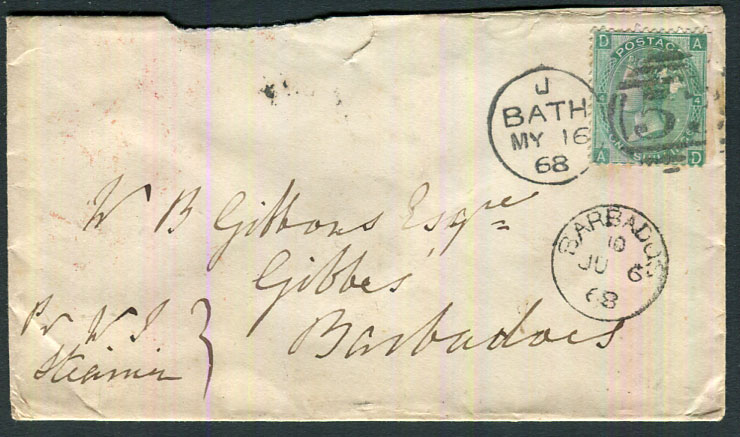 D A
POSTAGE
4
A D
J
BATH
MY 16
68
BARBADOS
10
JU 6
68
W B Gibbons Esqre
Gibbes
Barbadoes
Pr W I
Steamer